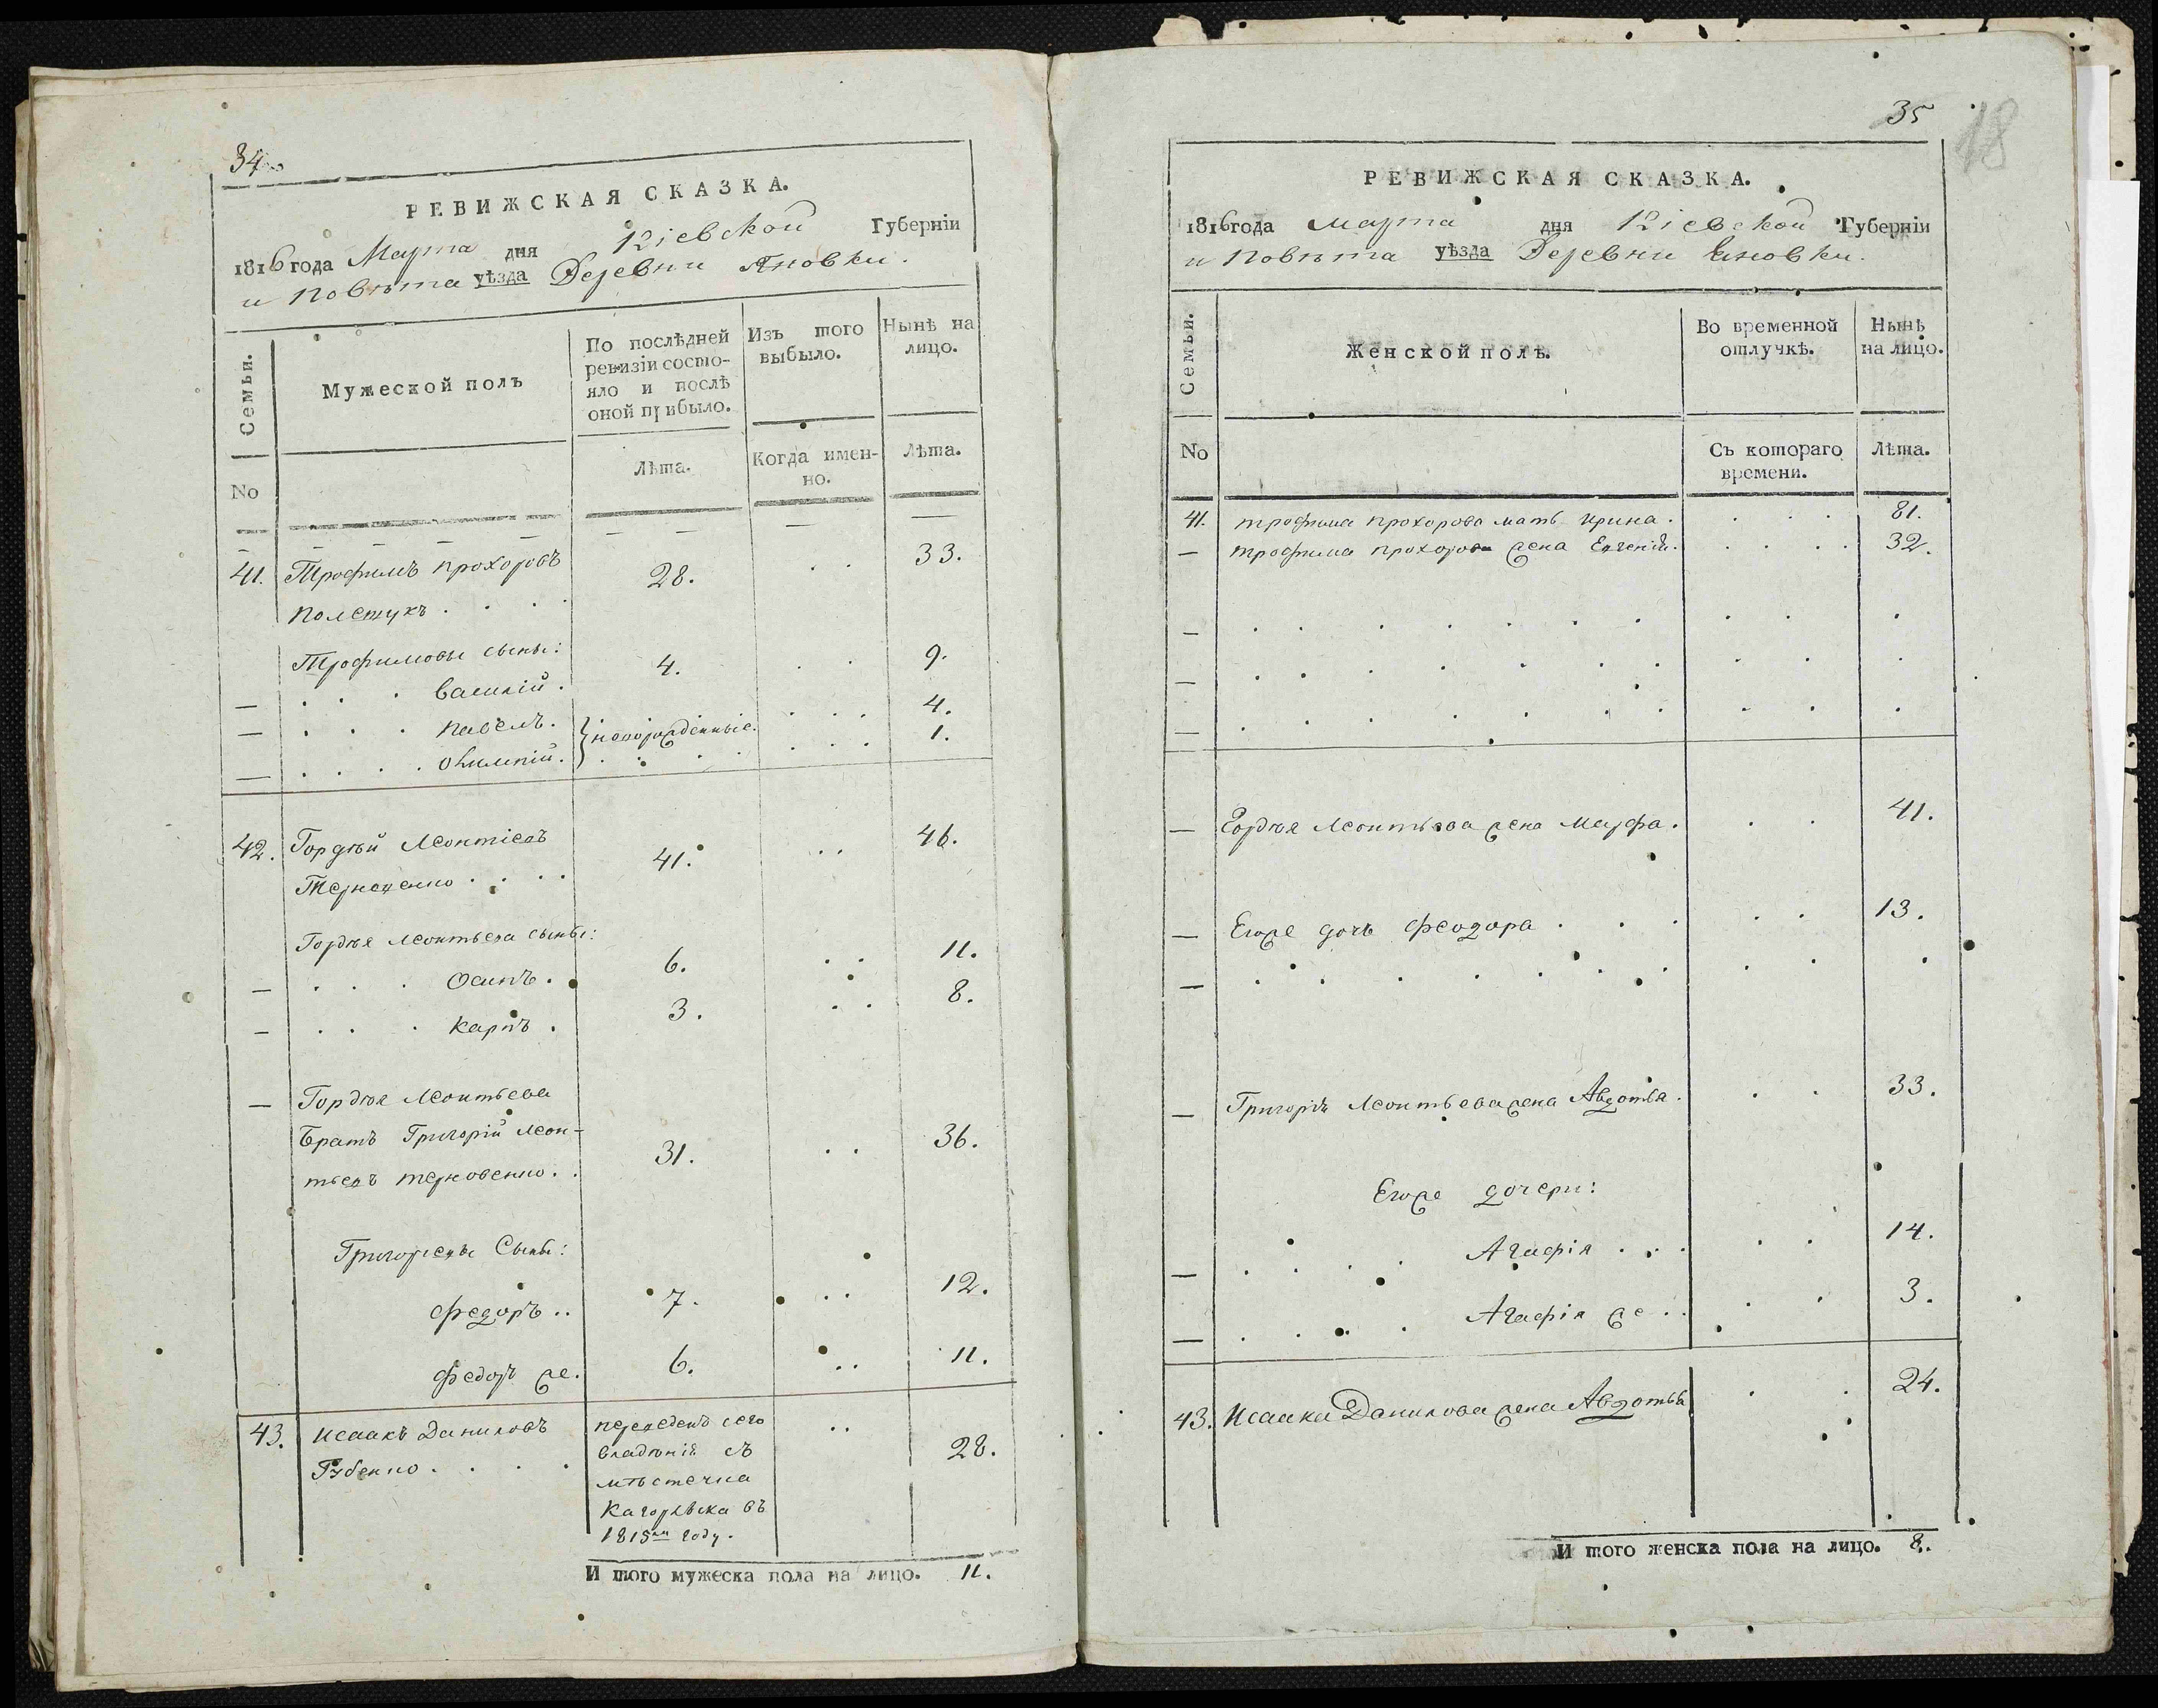 34
РЕВИЖСКАЯ СКАЗКА.
1816 года Марта дня Кіевской Губерніи
и Повѣта уѣзда Деревни Яновки.
Семьи.
Мужеской полъ
По послѣдней ревизіи состояло и послѣ оной прибыло.
Изъ того выбыло.
Нынѣ на лицо.
No
Лѣта.
Когда именно.
Лѣта.
41. Трофимъ Прохоровъ 28. 33.
Полещукъ
Трофимовы сыны:
— Василій. 4. 9.
— Павелъ. новорожденные. 4.
— 1.
42. Гордѣй Леонтіевъ 41. 46.
Гордѣя Леонтьева сыны:
— Осипъ. 6. 11.
— Карпъ. 3. 8.
— Гордѣя Леонтьева
Братъ Григорій Леон-
тьевъ Терновенко. 31. 36.
Григорьевы Сыны:
Федоръ 7. 12.
Федоръ же. 6. 11.
43. Исаакъ Даниловъ
Губенко 28.
переведенъ сего
владѣнія съ
мѣстечка
Кагорлыка въ
1815мъ году.
И того мужеска пола на лицо. 11.
35
18
РЕВИЖСКАЯ СКАЗКА.
1816 года Марта дня Кіевской Губерніи
и Повѣта уѣзда Деревни Яновки.
Семьи.
Женской полъ.
Во временной отлучкѣ.
Нынѣ на лицо.
No
Съ котораго времени.
Лѣта.
41. Трофима Прохорова мать Ирина. 81.
— Трофима Прохорова жена Евгенія. 32.
— Гордѣя Леонтьева жена Марфа. 41.
— Егоже дочь Феодора 13.
— Григорія Леонтьева жена Авдотья. 33.
Егоже дочери:
— Агафія 14.
— Агафія же 3.
43. Исаака Данилова жена Авдотья 24.
И того женска пола на лицо. 8.